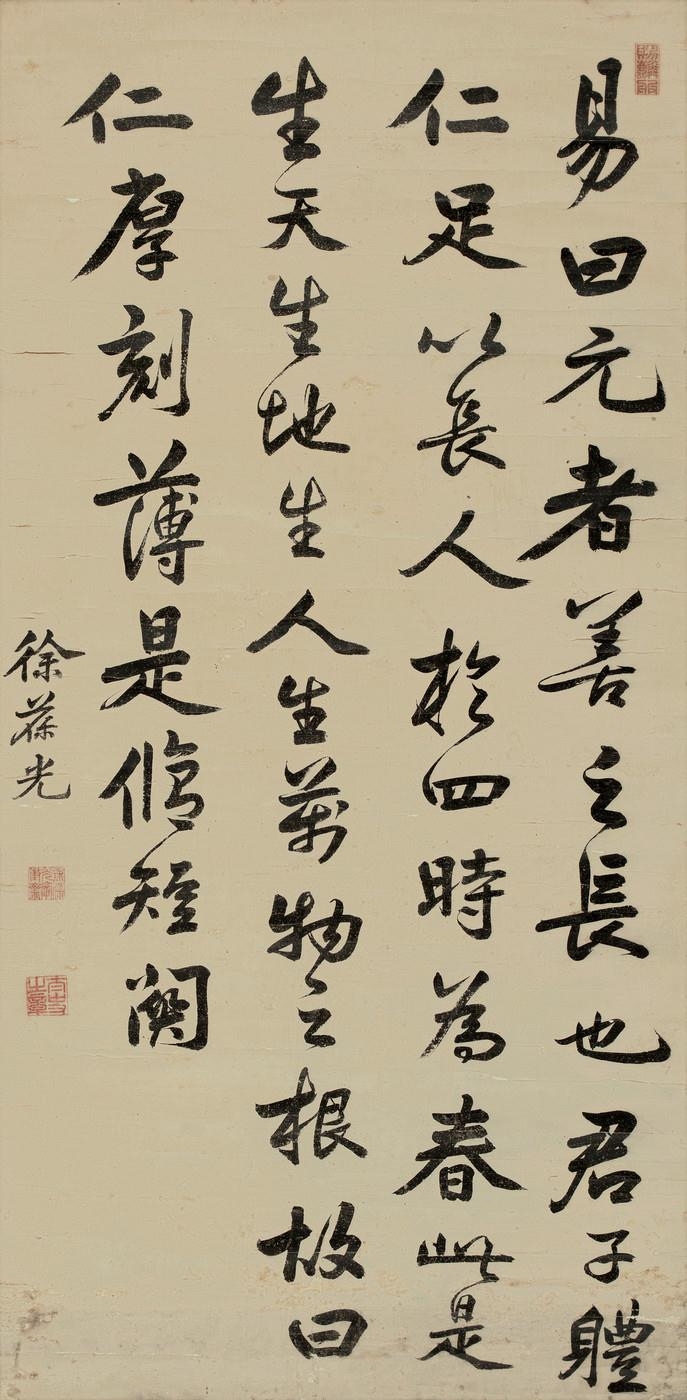 易曰元者善之長也君子體
仁足以長人於四時為春此是
生天生地生人生萬物之根故曰
仁厚刻薄是脩短關
徐葆光